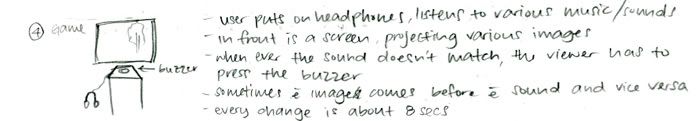 ④ Game
buzzer
- user puts on headphones, listens to various music/sounds
- in front is a screen, projecting various images
- when ever the sound doesn't match, the viewer has to
press the buzzer
- sometimes ē image comes before ē sound and vice versa
- every change is about 8 secs